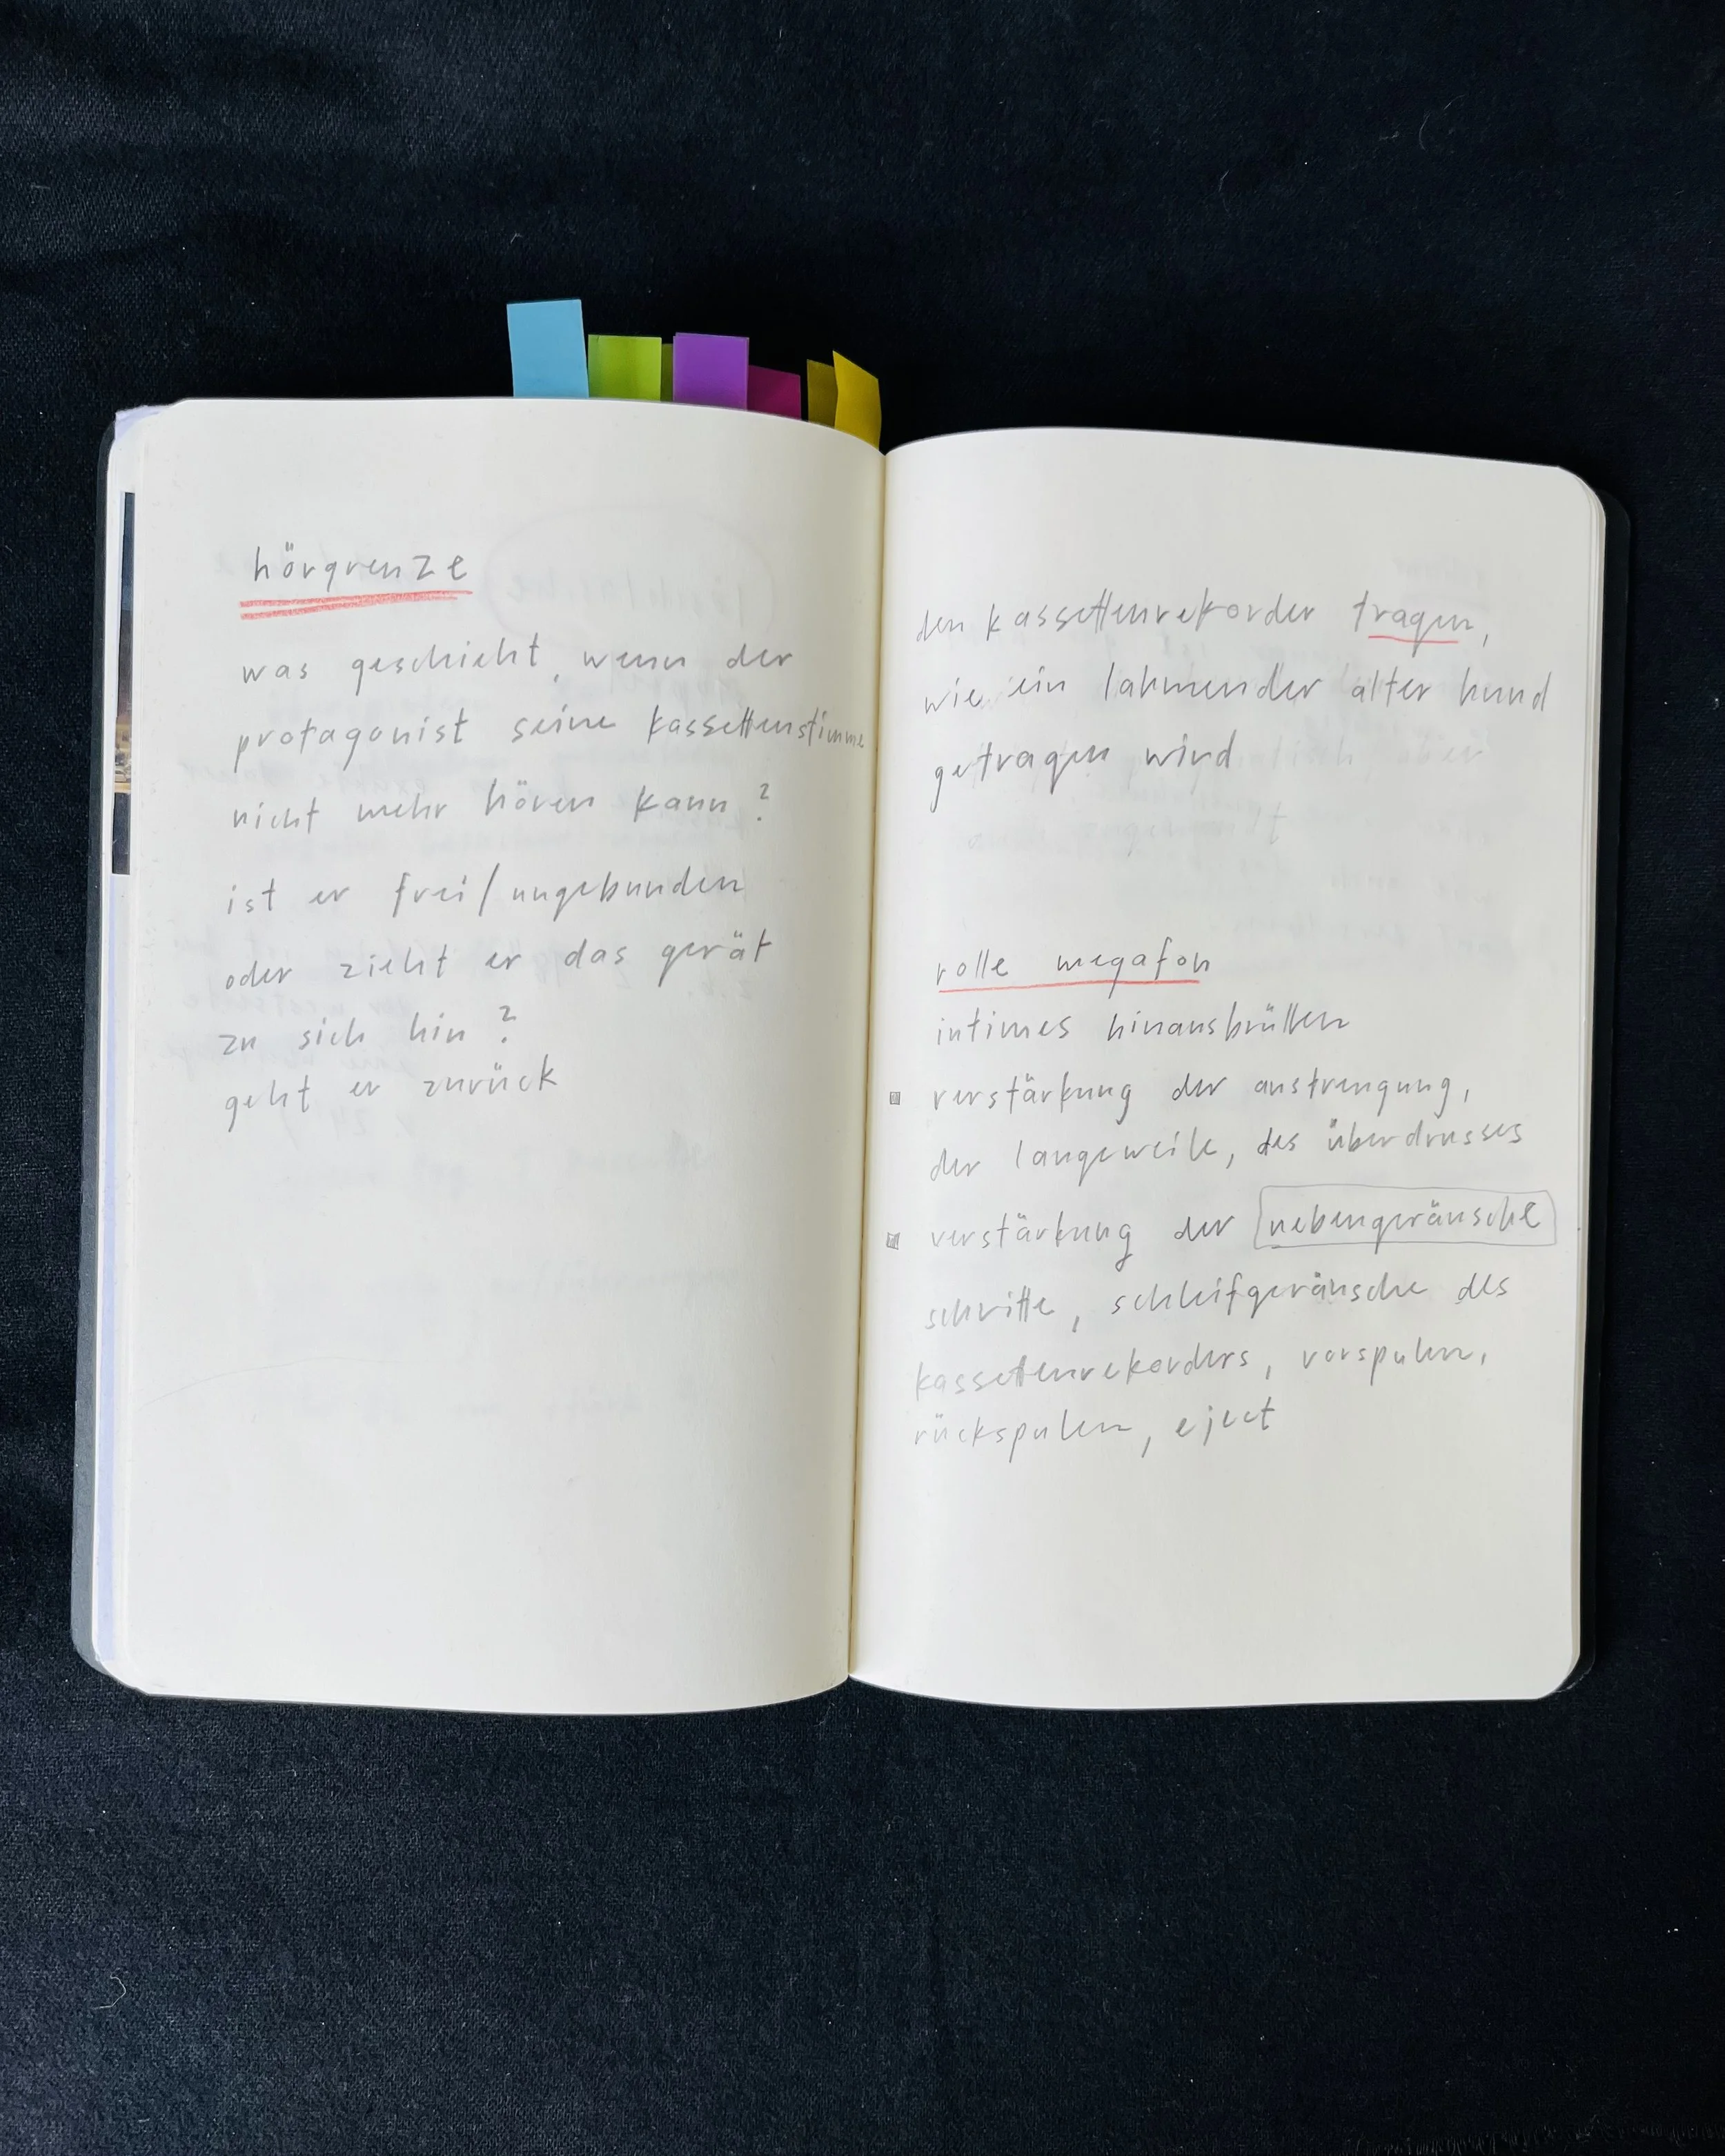 hörgrenze
was geschieht, wenn der
protagonist seine kassettenstimme
nicht mehr hören kann?
ist er frei/ungebunden
oder zieht er das gerät
zu sich hin?
geht er zurück
den kassettenrekorder tragen,
wie ein lahmender alter hund
getragen wird
rolle megafon
intimes hinausbrüllen
verstärkung der anstrengung,
der langeweile, des überdrusses
verstärkung der nebengeräusche
schritte, schleifgeräusche des
kassettenrekorders, vorspulen,
rückspulen, eject